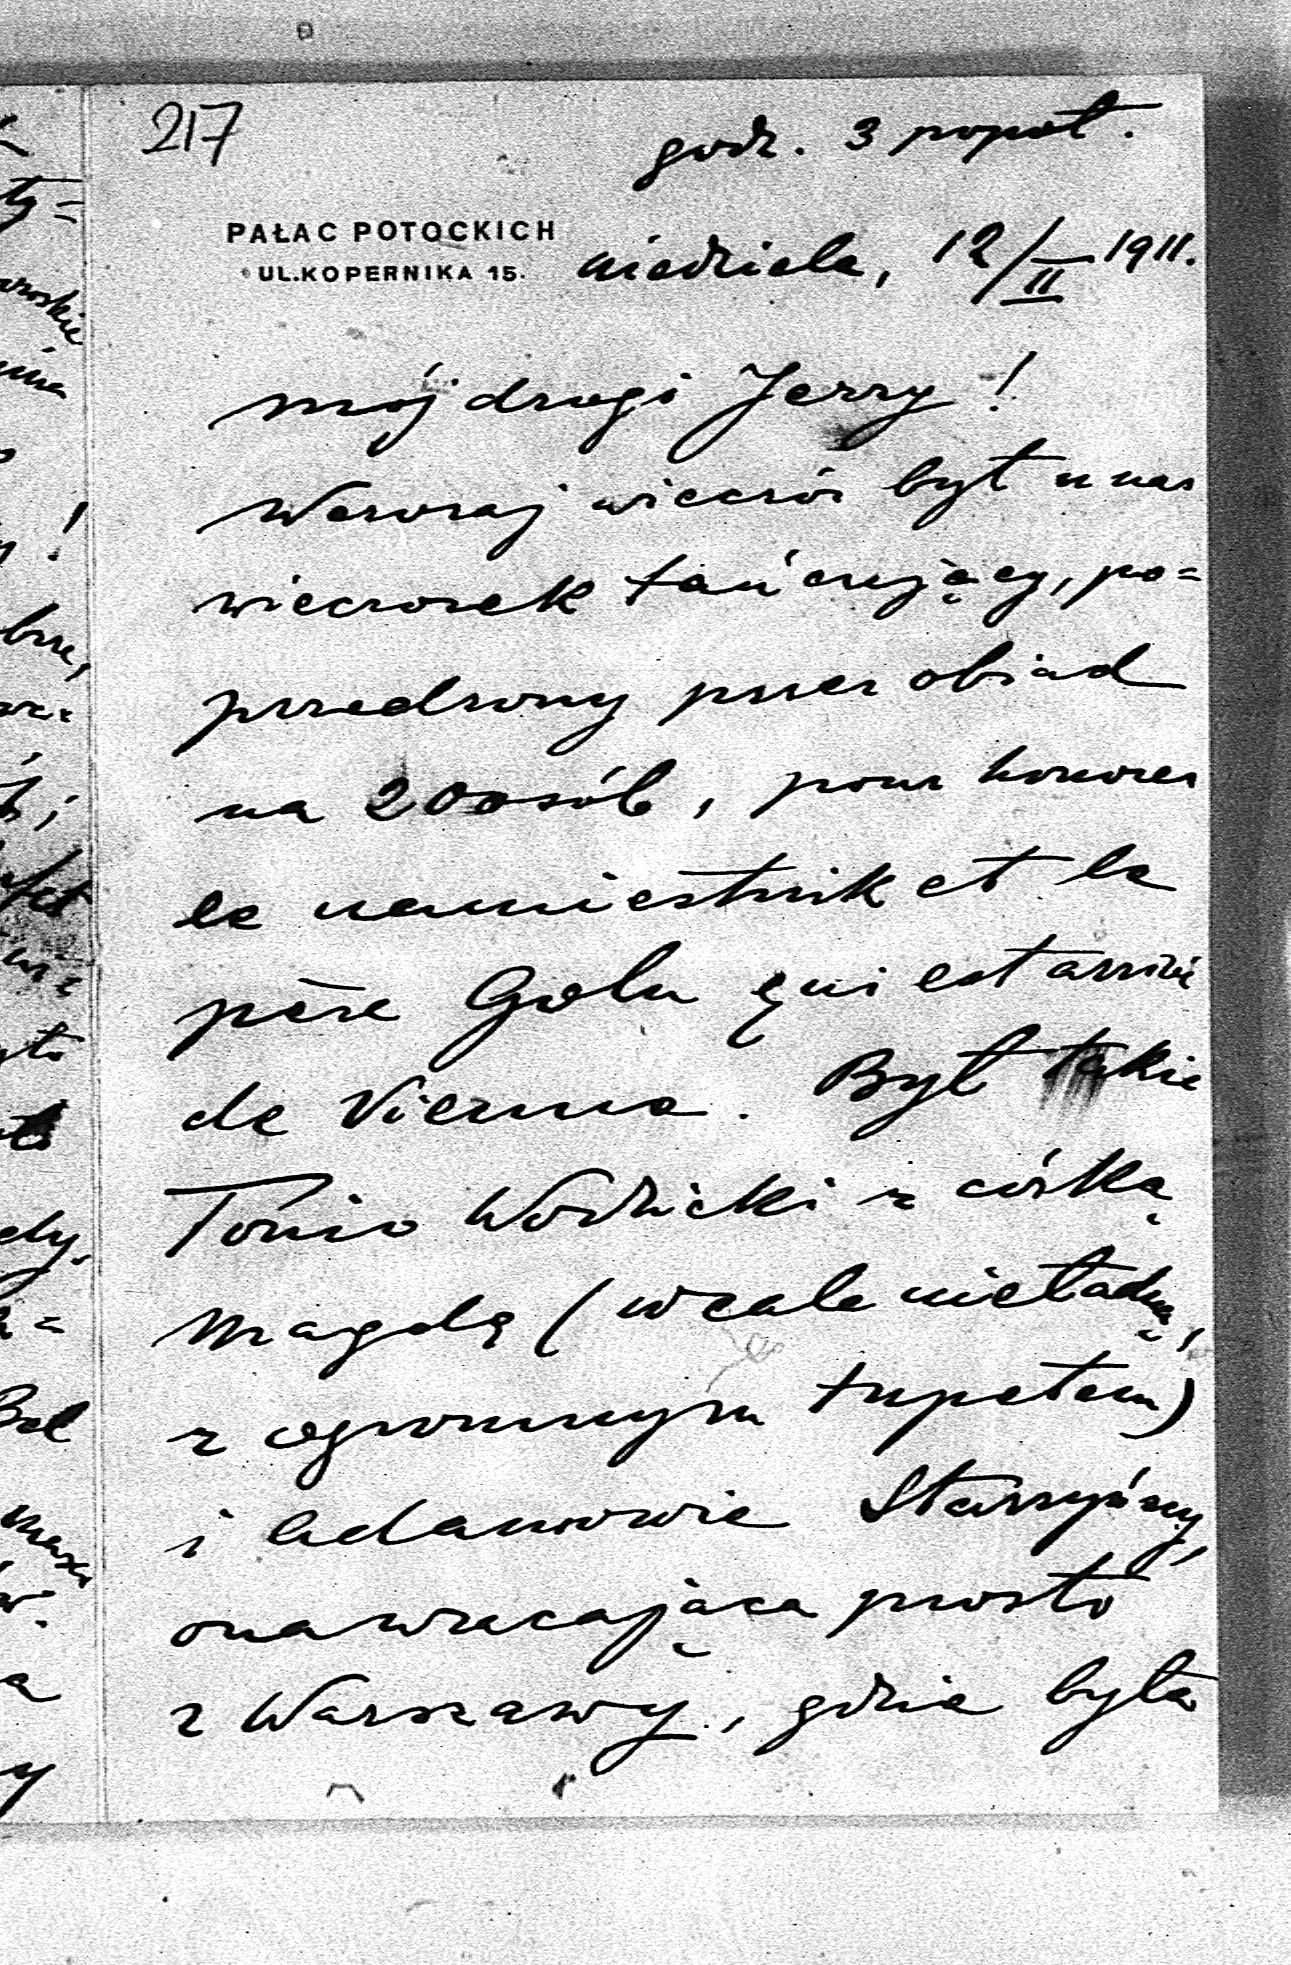 217
godz. 3 popoł.
PAŁAC POTOCKICH
UL. KOPERNIKA 15.
niedziela, 12/II 1911.
mój drogi Jerzy!
Wczoraj wieczór był u nas
wieczorek tańcujący, po=
przedzony przez obiad
na 20 osób, pour honorer
le namiestnik et le
père Golu qui est arrivé
de Vienne. Był także
Tonio Wodzicki z córką
Magdą (wcale nieładną,
z ogromnym tupetem)
i Adamowie Starzyńscy,
ona wracająca prosto
z Warszawy, gdzie była